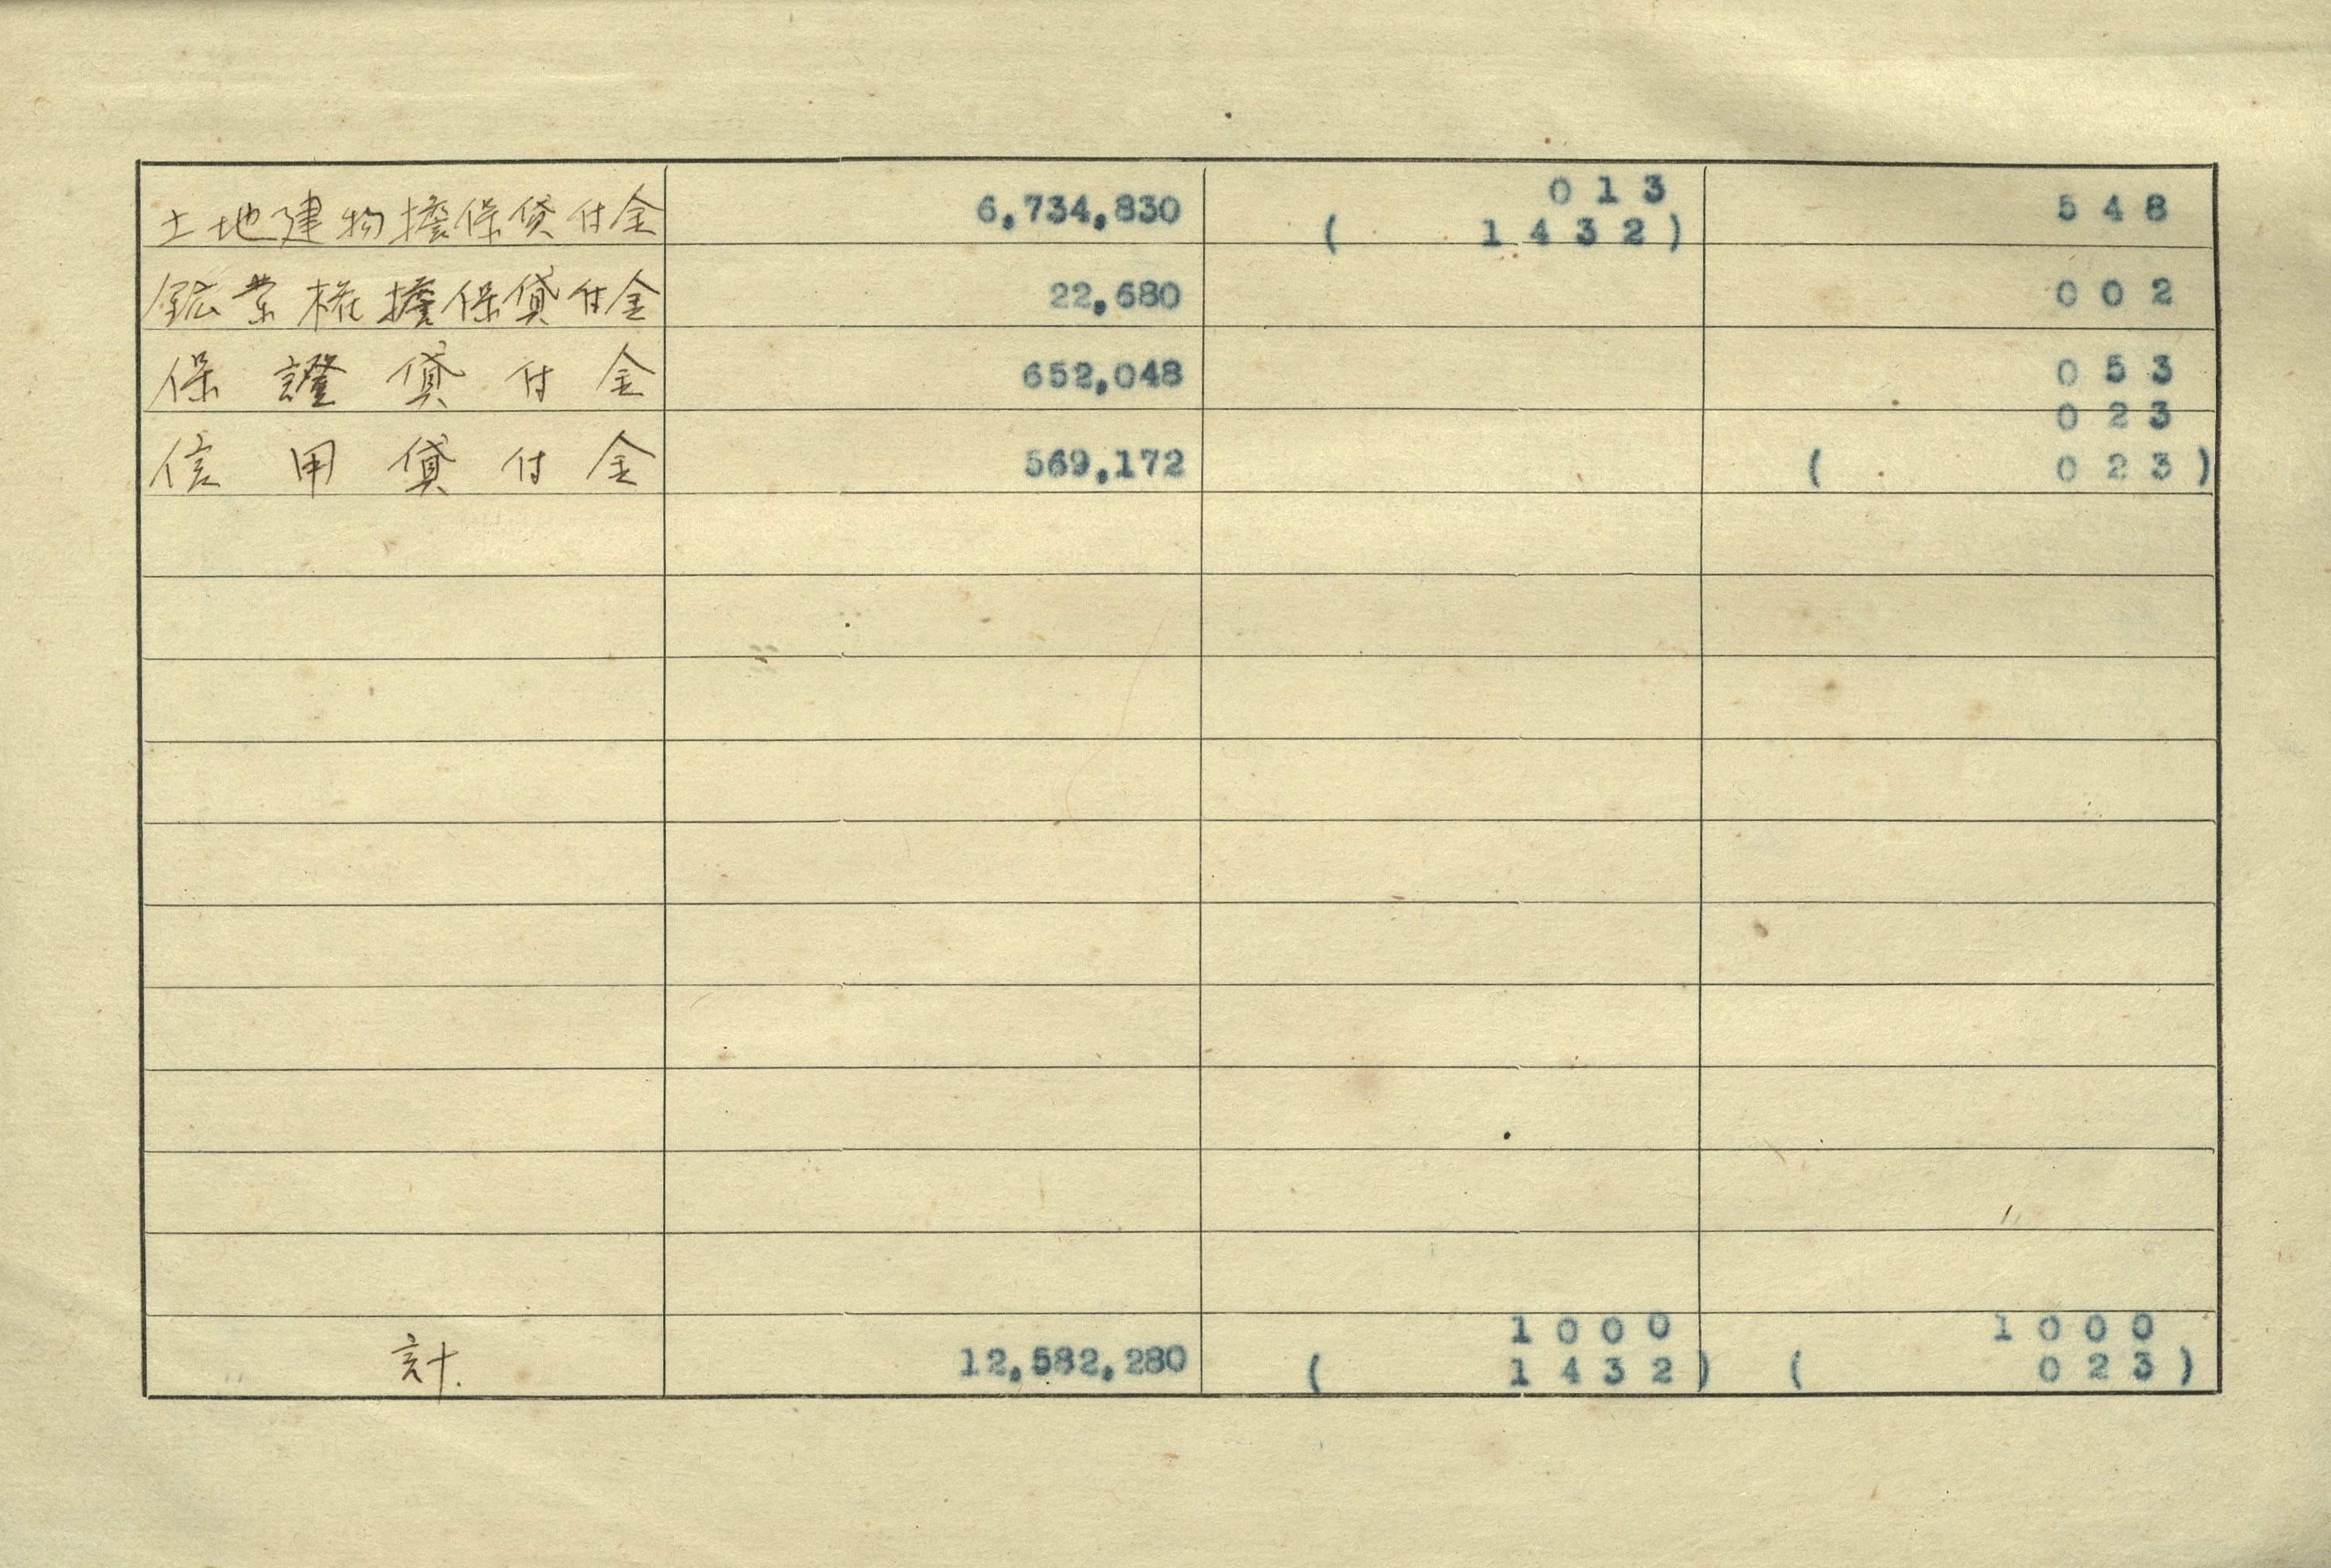 土地建物擔保貸付金 6,734,830 013 548
( 1432)
鉱業権擔保貸付金 22,680 002
保證貸付金 652,048 053
信用貸付金 569,172 023
( 023)
計. 12,582,280 1000 1000
( 1432) ( 023)